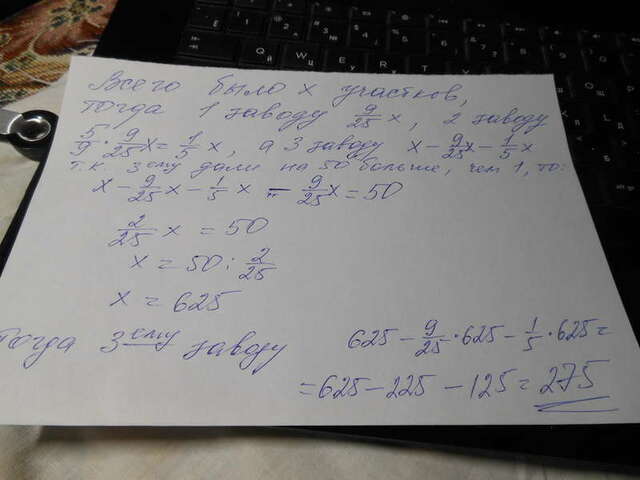 Всего было x участков,
тогда 1 заводу 9/25 x, 2 заводу
5/9 · 9/25 x = 1/5 x, а 3 заводу x - 9/25 x - 1/5 x
т.к. 3ему дали на 50 больше, чем 1, то:
x - 9/25 x - 1/5 x - 9/25 x = 50
2/25 x = 50
x = 50 : 2/25
x = 625
Тогда 3ему заводу 625 - 9/25 · 625 - 1/5 · 625 =
= 625 - 225 - 125 = 275